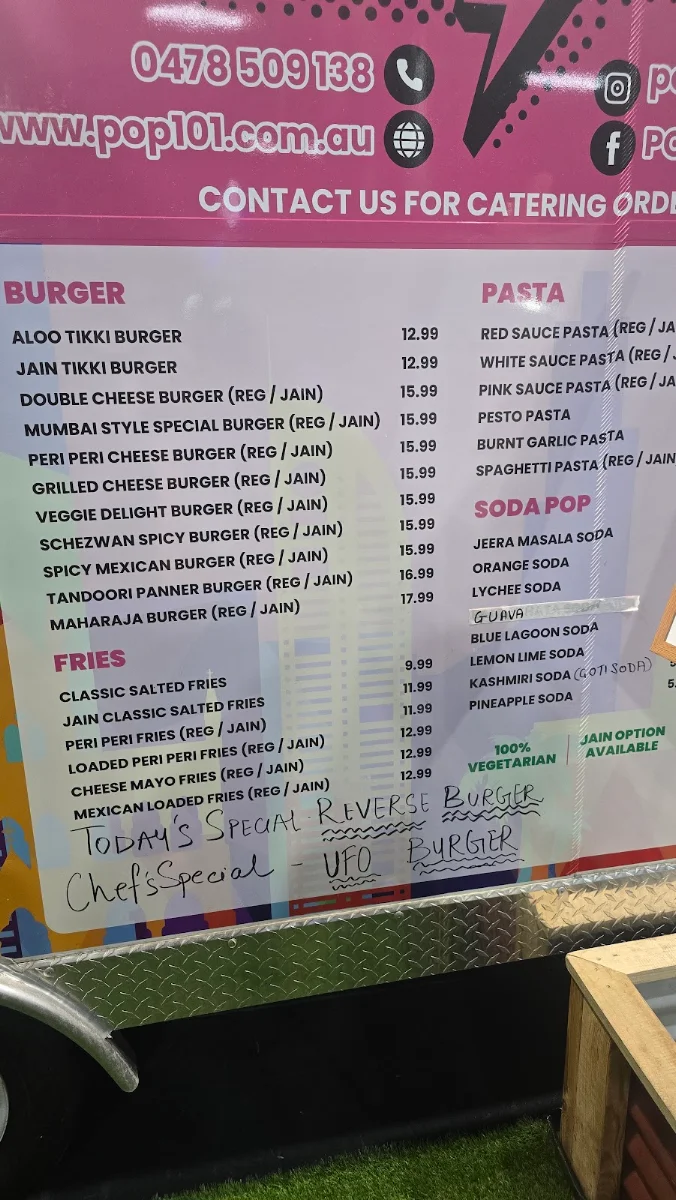 0478 509 138
www.pop101.com.au
CONTACT US FOR CATERING
BURGER
ALOO TIKKI BURGER 12.99
JAIN TIKKI BURGER 12.99
DOUBLE CHEESE BURGER (REG / JAIN) 15.99
MUMBAI STYLE SPECIAL BURGER (REG / JAIN) 15.99
PERI PERI CHEESE BURGER (REG / JAIN) 15.99
GRILLED CHEESE BURGER (REG / JAIN) 15.99
VEGGIE DELIGHT BURGER (REG / JAIN) 15.99
SCHEZWAN SPICY BURGER (REG / JAIN) 15.99
SPICY MEXICAN BURGER (REG / JAIN) 15.99
TANDOORI PANNER BURGER (REG / JAIN) 16.99
MAHARAJA BURGER (REG / JAIN) 17.99
FRIES
CLASSIC SALTED FRIES 9.99
JAIN CLASSIC SALTED FRIES 11.99
PERI PERI FRIES (REG / JAIN) 11.99
LOADED PERI PERI FRIES (REG / JAIN) 12.99
CHEESE MAYO FRIES (REG / JAIN) 12.99
MEXICAN LOADED FRIES (REG / JAIN) 12.99
PASTA
RED SAUCE PASTA (REG / JA
WHITE SAUCE PASTA (REG /
PINK SAUCE PASTA (REG / JA
PESTO PASTA
BURNT GARLIC PASTA
SPAGHETTI PASTA (REG / JAIN
SODA POP
JEERA MASALA SODA
ORANGE SODA
LYCHEE SODA
GUAVA
BLUE LAGOON SODA
LEMON LIME SODA
KASHMIRI SODA (GOTI SODA)
PINEAPPLE SODA
100% VEGETARIAN
JAIN OPTION AVAILABLE
TODAY'S SPECIAL REVERSE BURGER
Chef's Special - UFO BURGER